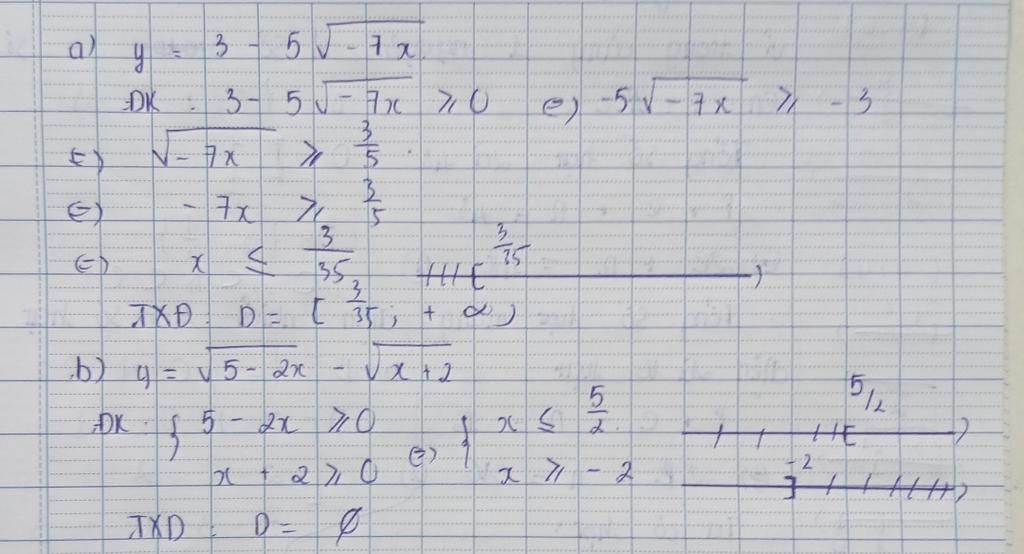 a) y = 3 - 5√(-7x)
ĐK : 3 - 5√(-7x) ≥ 0 ⇔ -5√(-7x) ≥ -3
⇔ √(-7x) ≥ 3/5
⇔ -7x ≥ 3/5
⇔ x ≤ 3/35 3/35
TXĐ : D = [3/35; +∞)
b) y = √(5-2x) - √(x+2)
ĐK : { 5 - 2x ≥ 0 ⇔ { x ≤ 5/2 5/2
x + 2 ≥ 0 x ≥ -2 -2
TXD : D = ∅